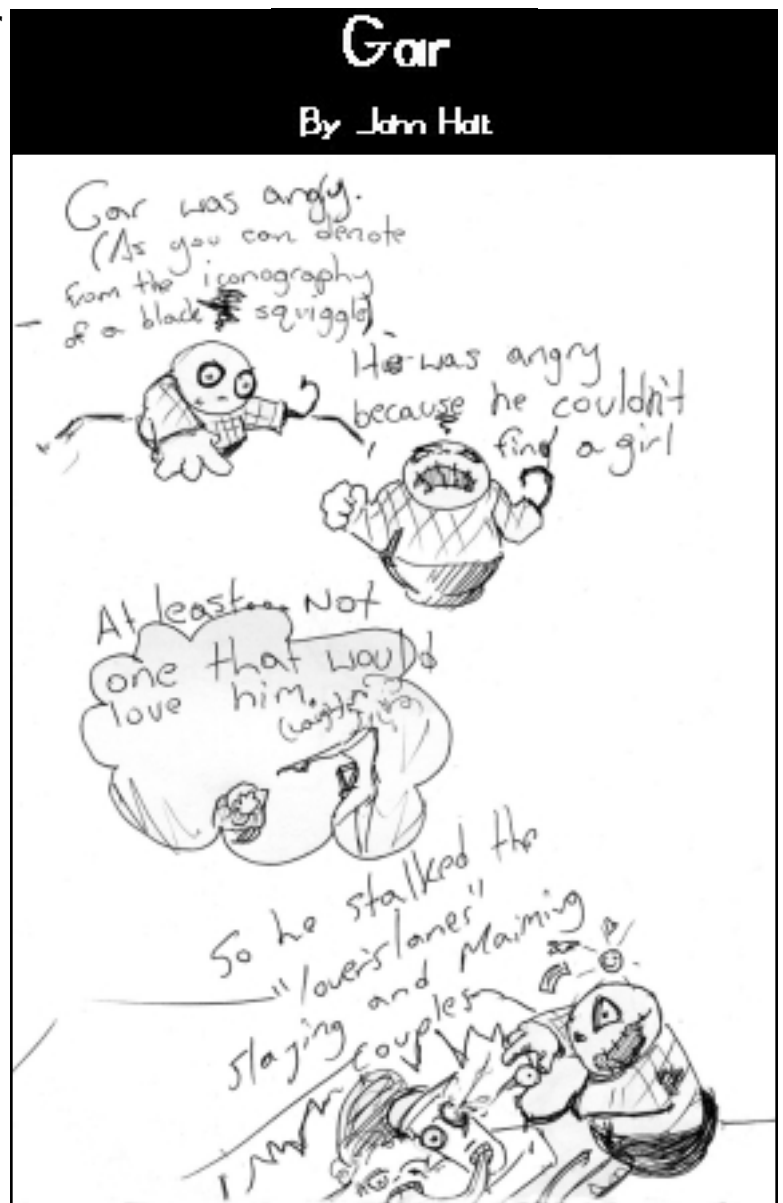 Gar
By John Holt
Gar was angry.
(As you can denote
from the iconography
of a black squiggle)
He was angry
because he couldn't
find a girl
At least.... Not
one that would
love him.
So he stalked the
"lover's lanes"
slaying and Maiming
couples